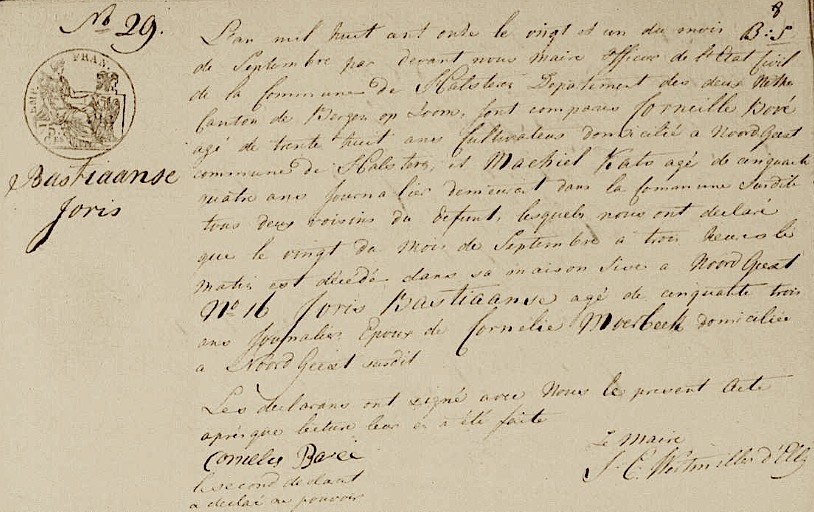 No 29.
8
B: S
FRAN
Bastiaanse
Joris
L'an mil huit cent onze le vingt et un du mois
de Septembre par devant nous maire officier de l'Etat Civil
de la Commune de Halsteren Departement des deux Nethes
Canton de Bergen op Zoom, sont comparus Corneille Bové
agé de trente huit ans Cultivateur domicilié a Noordgeest
commune de Halsteren, et Machiel Kats agé de cinquante
quatre ans Journalier demeurant dans la Commune susdite
tous deux voisins du Defunt, lesquels nous ont declaré
que le vingt du Mois de Septembre à trois heures le
Matin est décédé dans sa maison sise a Noord Geest
No 16 Joris Bastiaanse agé de cinquante trois
ans Journalier Epoux de Cornelie Moerbeek domiciliée
a Noord Geest susdit
Les declarans ont signé avec Nous le present Acte
après que lecture leur en a été faite
Cornelis Bové
le second declarant
a declaré ne pouvoir
Le Maire